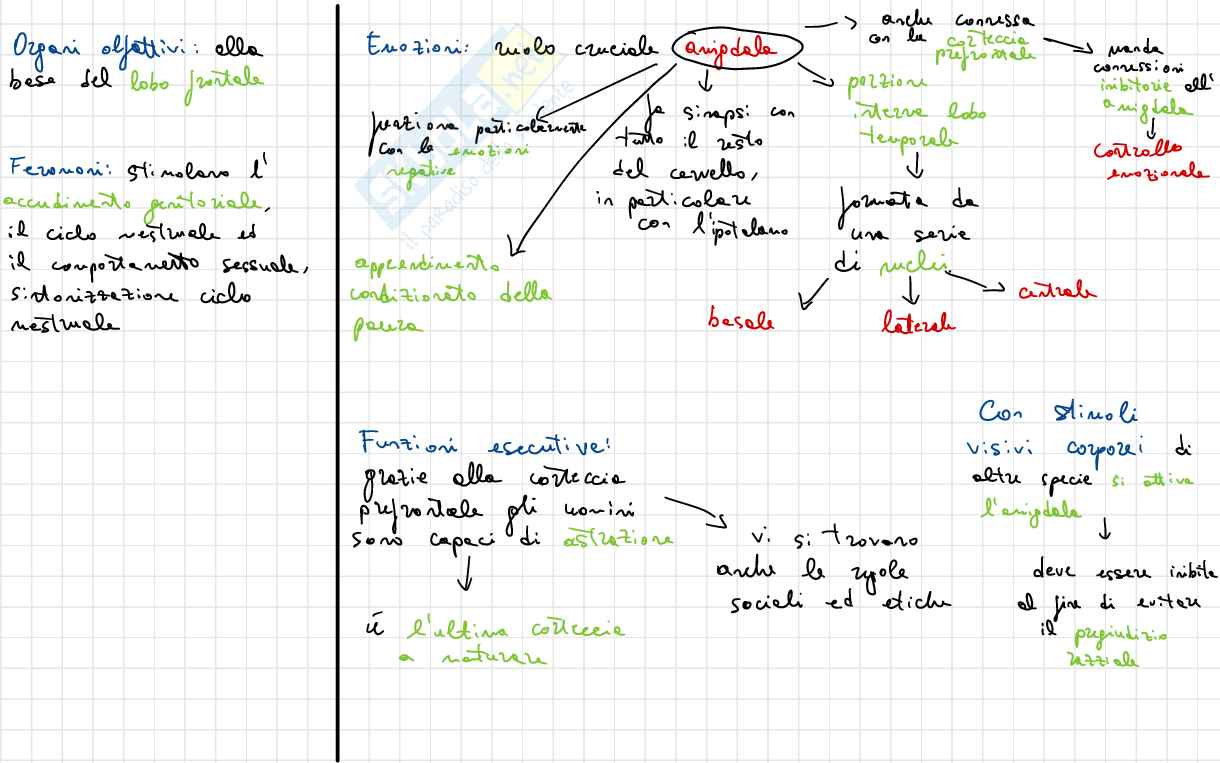 Organi olfattivi: alla
base del lobo frontale
Feromoni: stimolano l'
accudimento genitoriale,
il ciclo mestruale ed
il comportamento sessuale,
sintonizzazione ciclo
mestruale
Emozioni: ruolo cruciale amigdala
anche connessa
con la corteccia
prefrontale
manda
connessioni
inibitorie all'
amigdala
controllo
emozionale
funziona particolarmente
con le emozioni
negative
fa sinapsi con
tutto il resto
del cervello,
in particolare
con l'ipotalamo
porzione
interna lobo
temporale
formata da
una serie
di nuclei
basale
laterale
centrale
apprendimento
condizionato della
paura
Funzioni esecutive:
grazie alla corteccia
prefrontale gli uomini
sono capaci di astrazione
è l'ultima corteccia
a maturare
vi si trovano
anche le regole
sociali ed etiche
Con stimoli
visivi corporei di
altre specie si attiva
l'amigdala
deve essere inibita
al fine di evitare
il pregiudizio
razziale
SKUOLA.net
il paradiso dello studente